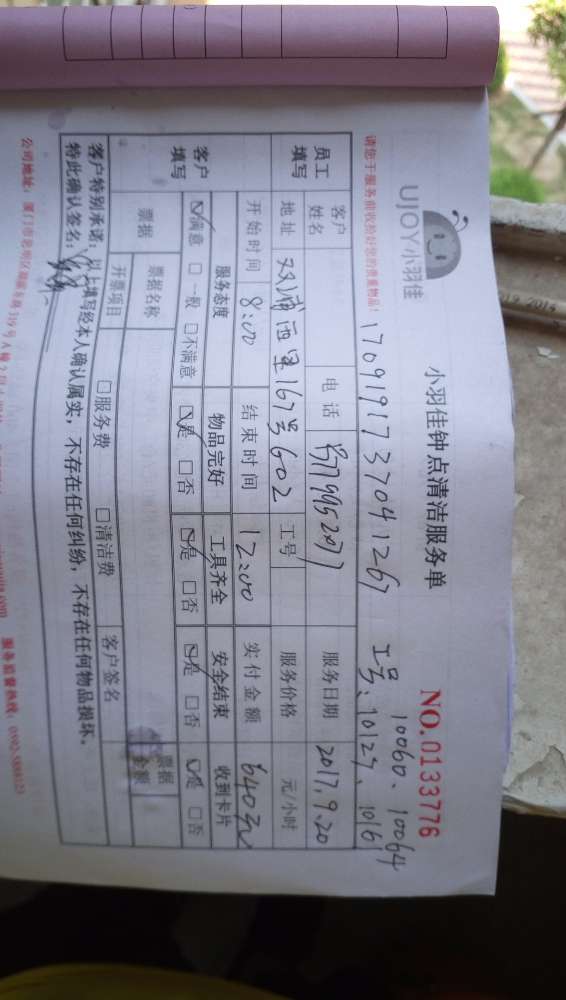 UJOY小羽佳
小羽佳钟点清洁服务单
NO.0133776
10060、10064
请您于服务前收拾好您的贵重物品!
17091917370412 67
工号:10127、1016
员工填写
客户姓名
电话
服务日期 2017.9.20
地址 西里167号602
工号
服务价格 元/小时
客户填写
开始时间 8:00
结束时间 12:00
实付金额 640元
服务态度 物品完好 工具齐全 安全结束 收到卡片
☑满意 □一般 □不满意 ☑是 □否 ☑是 □否 ☑是 □否 ☑是 □否
票据
票据名称
票据金额
开票项目 □服务费 □清洁费 客户签名
客户特别承诺:以上填写经本人确认属实,不存在任何纠纷,不存在任何物品损坏。
特此确认签名:
公司地址:厦门市思明区
服务监督热线: